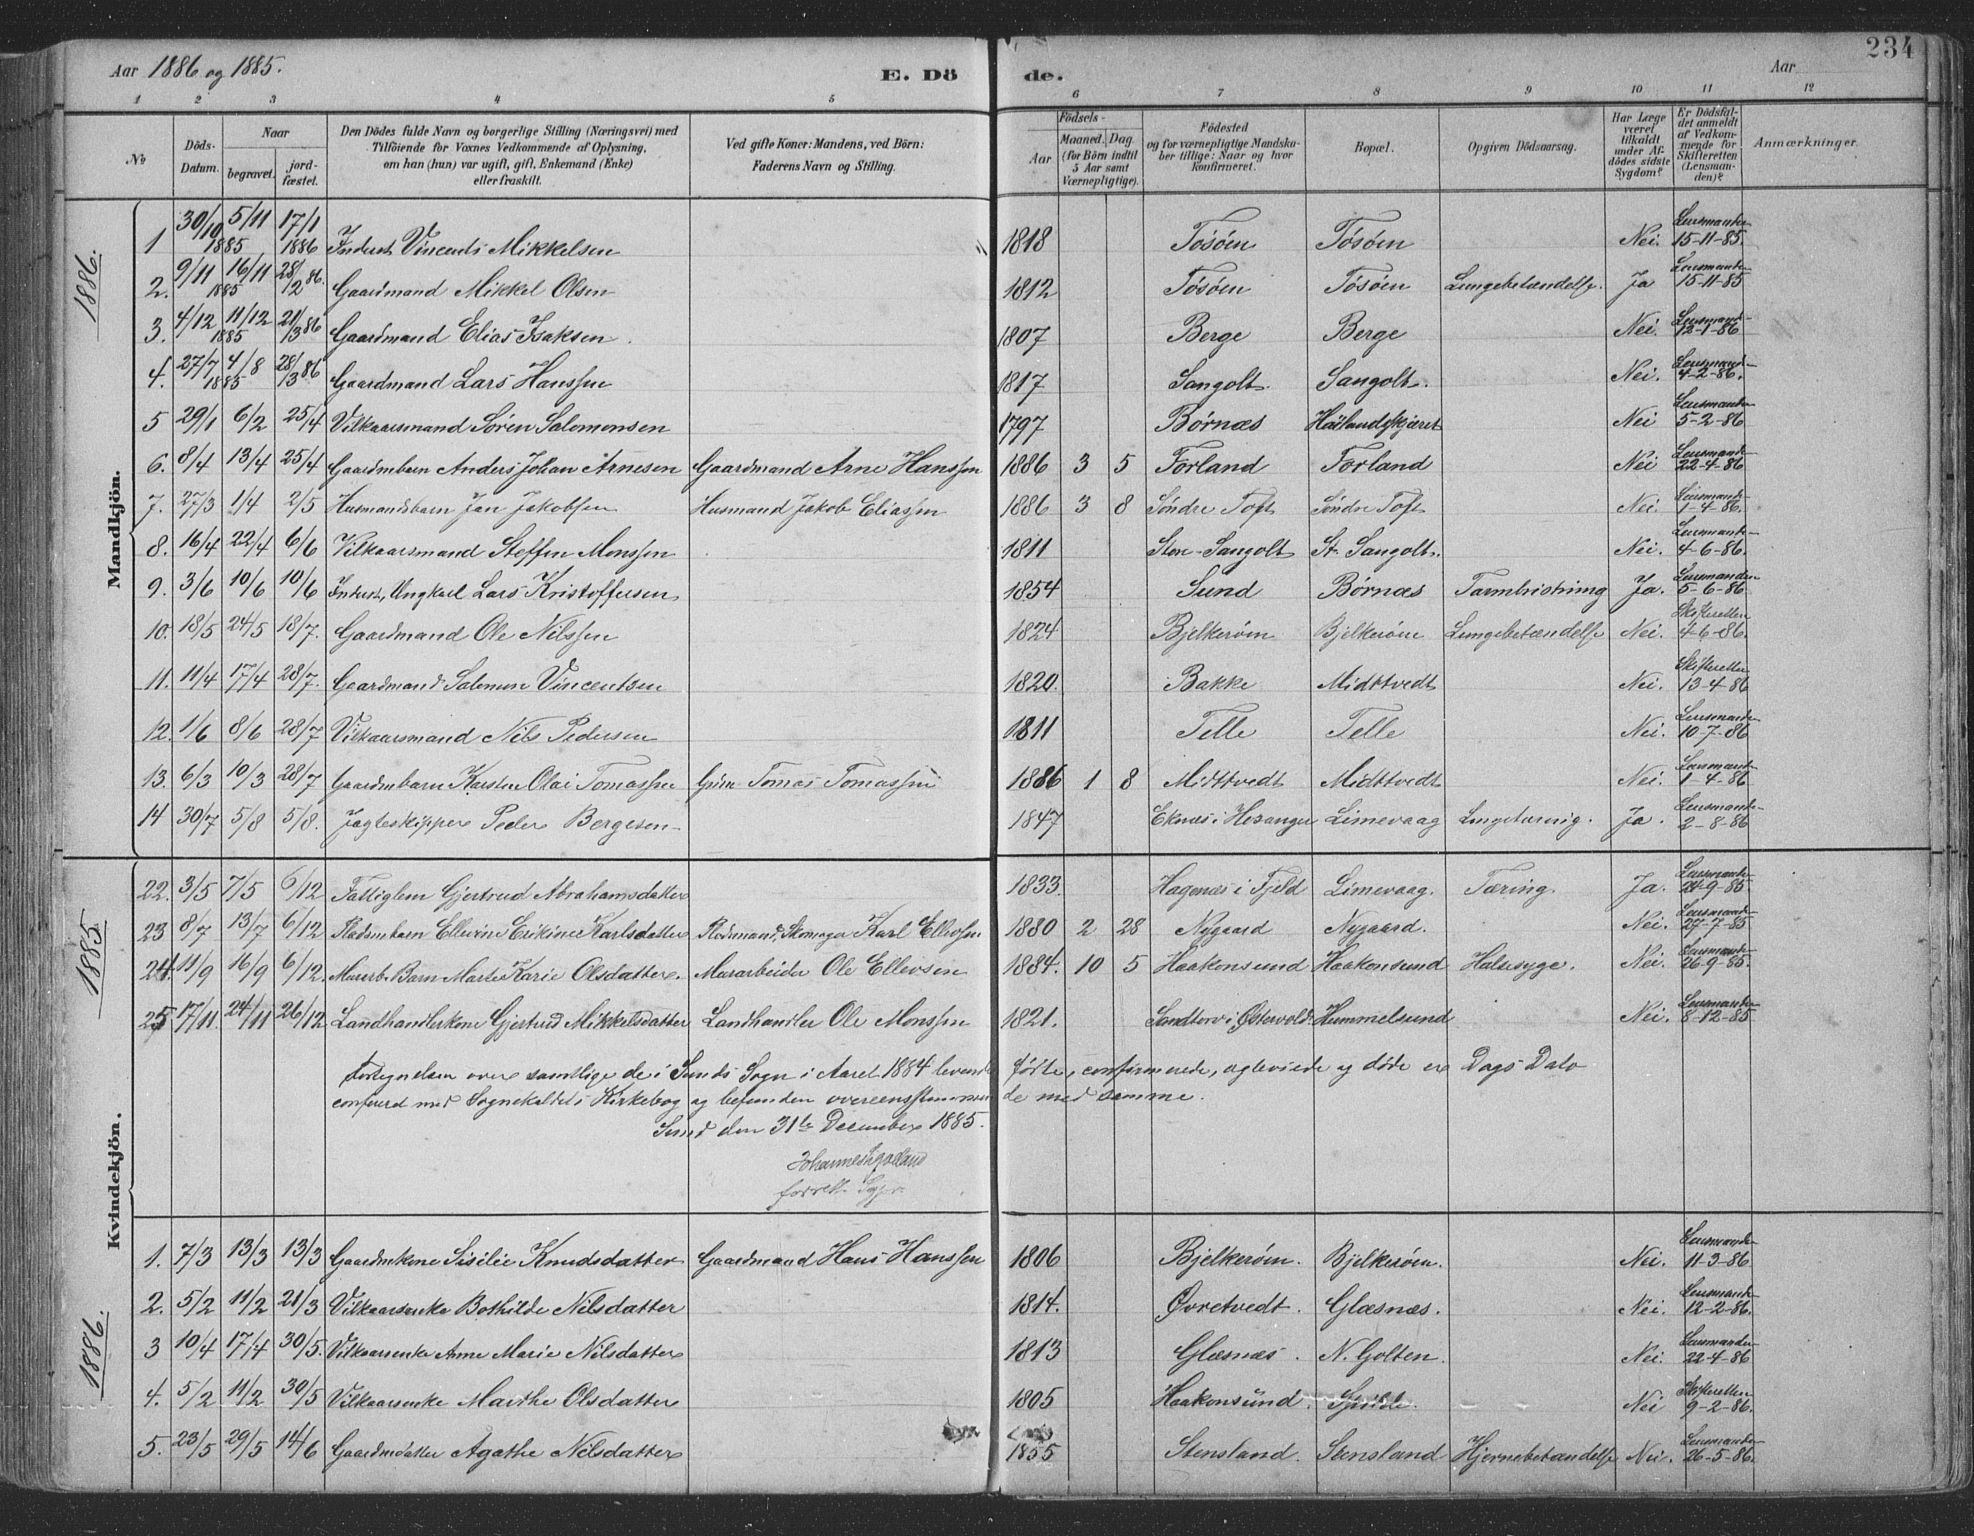 Aar 1886 og 1885. E. Dö de. Aar 234
1 2 3 4 5 6 7 8 9 10 11 12
No Döds-Datum. Naar begravet. jord-fæstet. Den Dödes fulde Navn og borgerlige Stilling (Næringsvei) med Tilföiende for Voxnes Vedkommende af Oplysning, om han (hun) var ugift, gift, Enkemand (Enke) eller fraskilt. Ved gifte Koner: Mandens, ved Börn: Faderens Navn og Stilling. Födsels- Aar Maaned. Dag (for Börn indtil 5 Aar samt Værnepligtige). Födested og for værnepligtige Mandskaber tillige: Naar og hvor konfirmeret. Bopæl. Opgiven Dödsaarsag. Har Læge været tilkaldt under Afdödes sidste Sygdom? Er Dödsfaldet anmeldt af Vedkommende for Skifteretten (Lensmanden)? Anmærkninger.
1886.
Mandkjön.
1 30/10 1885 5/11 17/1 1886 Inderst Vincents Mikkelsen 1818 Tösöen Tösöen Nei. Lensmanden 15-11-85.
2. 9/11 1885 16/11 28/2 86. Gaardmand Mikkel Olsen 1812 Tösöen Tösöen Lungebetændelse. Ja Lensmanden 15-11-85
3. 4/12 1885 11/12 21/3 86 Gaardmand Elias Isaksen. 1807 Berge Berge Nei. Lensmand 12-1-86
4. 27/7 1885 4/8 28/3 86 Gaardmand Lars Hanssen 1817 Sangolt. Sangolt. Nei. Lensmand 4-2-86.
5 29/1 6/2 25/4 Vilkaarsmand Sören Salomonsen 1797 Börnæs Nei Lensmanden 5-2-86
6. 8/4 13/4 25/4 Gaardmbarn Anders Johan Arnesen Gaardmand Arne Hanssen 1886 3 5 Forland Forland Nei Lensmand 22-4-86
7. 27/3 1/4 2/5 Husmandsbarn Jan Jakobsen Husmand Jakob Eliassen 1886 3 8 Söndre Toft Söndre Toft Nei. Lensmand 1-4-86.
8. 16/4 22/4 6/6 Vilkaarsmand Steffen Monssen 1811 Store-Sangolt St. Sangolt. Nei. Lensmand 4-6-86
9. 3/6 10/6 10/6 Inderst, Ungkarl Lars Kristoffersen 1854 Sund Börnæs Ja. Lensmanden 5-6-86
10. 18/5 24/5 18/7. Gaardmand Ole Nilssen 1824 Bjelkeröen Bjelkeröen Lungebetændelse Nei. Skifteretten 4-6-86.
11. 11/4 17/4 28/7. Gaardmand Salomon Vincentsen 1820. Bakke Midttvedt Nei. Skifteretten 13-4-86
12. 1/6 8/6 28/7 Vilkaarsmand Nils Pedersen 1811 Telle Telle Nei. Lensmanden 10-7-86
13. 6/3 10/3 28/7 Gaardmbarn Karsten Olai Tomassen Tomas Tomassen 1886 1 8 Midttvedt Midttvedt Nei. Lensmand 1-4-86
14 30/7 5/8 5/8. Jagteskipper Peder Bergesen 1847 Eknæs i Hosanger Limevaag Ja. Lensmanden 2-8-86
1885.
Kvindekjön.
22. 3/5 7/5 6/12 Fattiglem Gjertrud Abrahamsdatter 1833. Hagenæs i Fjeld Limevaag. Tæring. Ja. Lensmand -9-85.
23 8/7 13/7 6/12 Ellevine Erikine Karlsdatter Skomager Karl 1880 2 28 Nygaard Nygaard. Nei. Lensmand 27-7-85
24. 11/9 16/9 6/12. Murarb. Barn Marte Karie Olsdatter. Murarbeider Ole Ellevsen 1884. 10 5 Haakonsund Haakonsund Halssyge. Nei. Lensmand 26-9-85.
25 17/11. 24/11 26/12 Landhandlerkone Gjertrud Mikkelsdatter Landhandler Ole Monssen 1821. Sandtorv i Østervold. Hummelsund Nei. Lensmand 8-12-85
Fortegnelsen over samtlige de i Sunds Sogn i Aaret 1884 levende födte, confirmerede, ægteviede og döde er Dags Dato
confererd med Sognekaldets Kirkebog og befunden overensstemmende med samme.
Sund den 31te December 1885.
1886.
1. 7/3 13/3 13/3 Gaardmkone Sisilie Knudsdatter Gaardmand Hans Hanssen 1806 Bjelkeröen. Bjelkeröen. Nei. Lensmanden 11-3-86
2. 5/2 11/2 21/3 Vilkaarsenke Bothilde Nilsdatter 1814. Øvretvedt. Glæsnæs. Nei. Lensmand 12-2-86.
3 10/4 17/4 30/5. Vilkaarsenke Anne Marie Nilsdatter 1813 Glæsnæs. N. Golten. Nei. Lensmanden 22-4-86
4. 5/2 11/2 30/5 Vilkaarsenke Marthe Olsdatter 1805 Haakonsund. Nei Skifteretten 9-2-86.
5. 23/5 29/5 14/6 Gaardmdatter Agathe Nilsdatter 1855 Stensland. Stensland Hjernebetændelse Nei. Lensmanden 26-5-86.